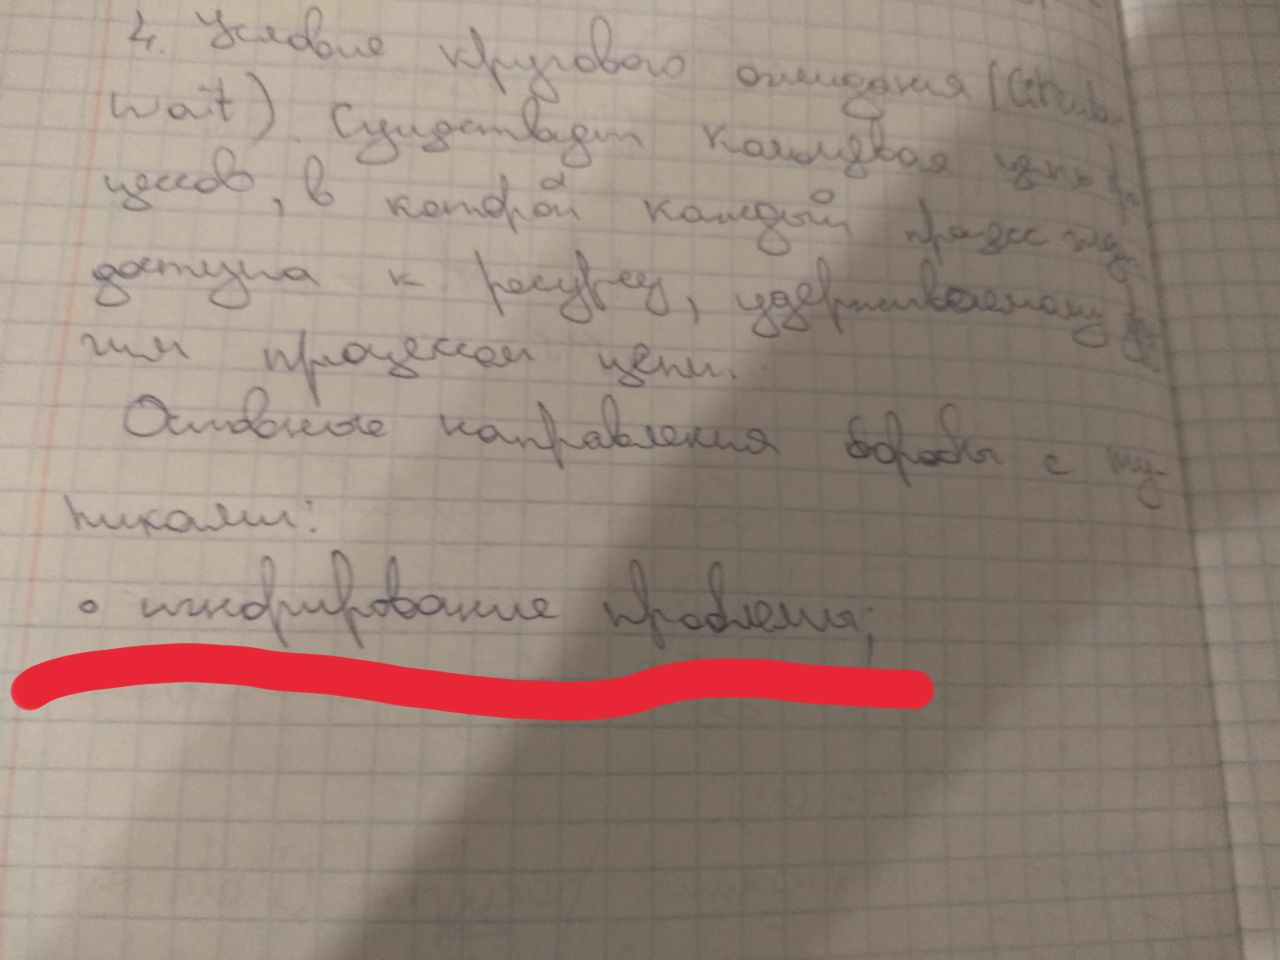 4. Условие кругового ожидания (Circular
wait). Существует кольцевая цепь про
цессов, в которой каждый процесс ждёт
доступа к ресурсу, удерживаемому дру
гим процессом цепи.
Основные направления борьбы с ту-
пиками:
• игнорирование проблемы;